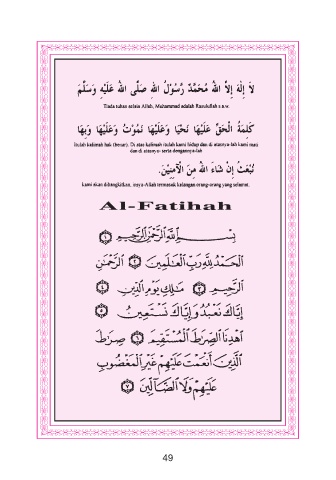 لاَ إِلٰهَ إِلاَّ اللهُ مُحَمَّدٌ رَّسُوْلُ اللهِ صَلَّى اللهُ عَلَيْهِ وَسَلَّمَ
Tiada tuhan selain Allah, Muhammad adalah Rasulullah s.a.w.
كَلِمَةُ الْحَقِّ عَلَيْهَا نَحْيَا وَعَلَيْهَا نَمُوْتُ وَعَلَيْهَا وَبِهَا
Itulah kalimah hak (benar). Di atas kalimah itulah kami hidup dan di atasnya-lah kami mati
dan di atasnya- serta dengannya-lah
نُبْعَثُ إِنْ شَاءَ اللهُ مِنَ الْآمِنِيْنَ.
kami akan dibangkitkan, insya-Allah termasuk kalangan orang-orang yang selamat.
Al-Fatihah
بِسْمِ ٱللَّهِ ٱلرَّحْمَٰنِ ٱلرَّحِيمِ ١
ٱلْحَمْدُ لِلَّهِ رَبِّ ٱلْعَٰلَمِينَ ٢ ٱلرَّحْمَٰنِ
ٱلرَّحِيمِ ٣ مَٰلِكِ يَوْمِ ٱلدِّينِ ٤
إِيَّاكَ نَعْبُدُ وَإِيَّاكَ نَسْتَعِينُ ٥
ٱهْدِنَا ٱلصِّرَٰطَ ٱلْمُسْتَقِيمَ ٦ صِرَٰطَ
ٱلَّذِينَ أَنْعَمْتَ عَلَيْهِمْ غَيْرِ ٱلْمَغْضُوبِ
عَلَيْهِمْ وَلَا ٱلضَّآلِّينَ ٧
49